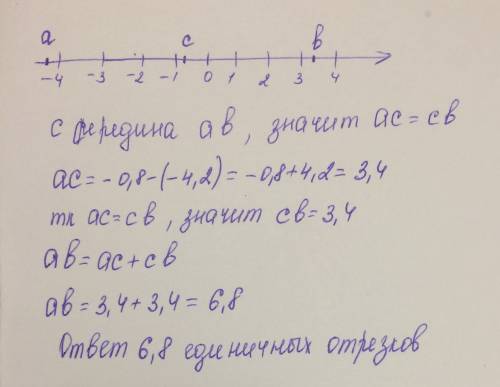 a c b
-4 -3 -2 -1 0 1 2 3 4
c середина ab, значит ac = cb
ac = -0,8-(-4,2) = -0,8+4,2 = 3,4
тк ac = cb, значит cb = 3,4
ab = ac + cb
ab = 3,4 + 3,4 = 6,8
Ответ 6,8 единичных отрезков